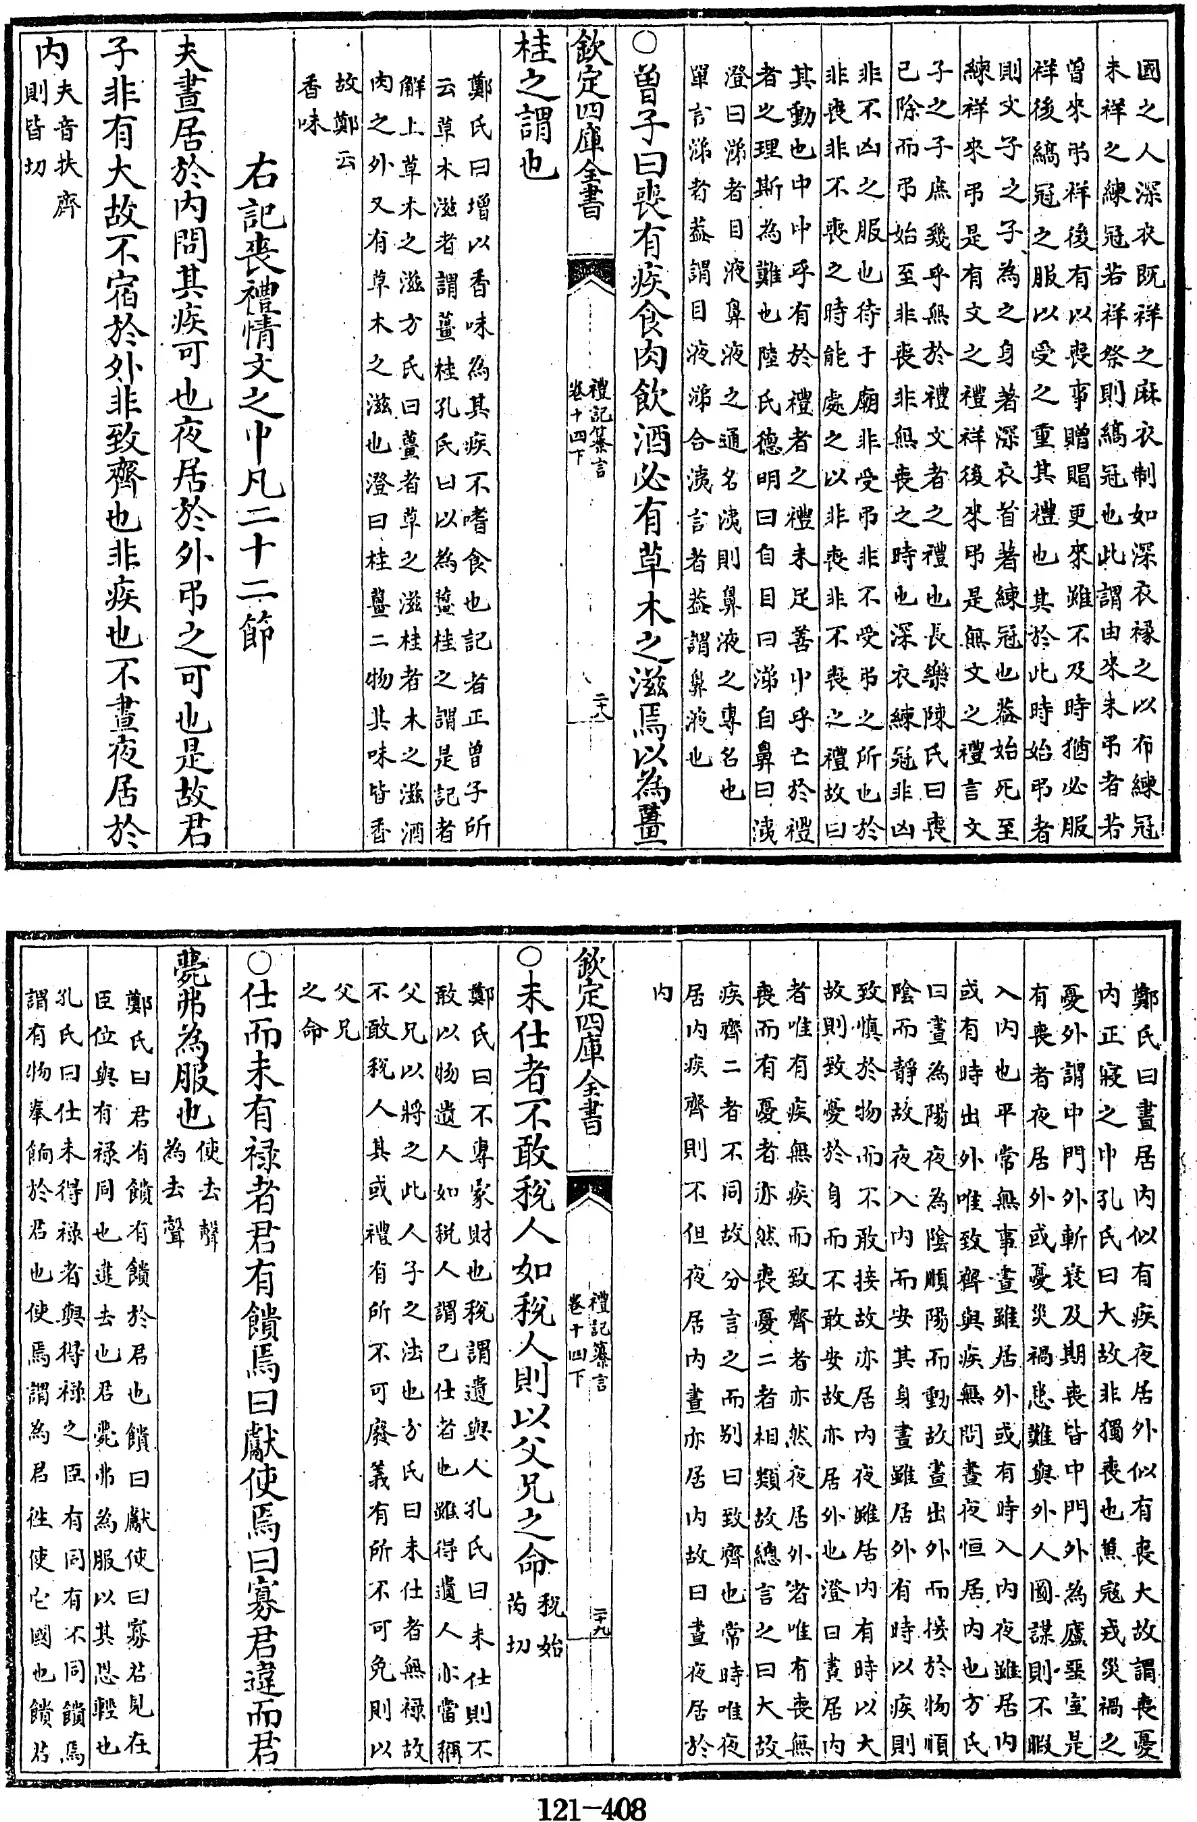 國之人深衣既祥之麻衣制如深衣縁之以布練冠
未祥之練冠若祥祭則縞冠也此謂由來未弔者若
曾來弔祥後有以喪事贈賵更來雖不及時猶必服
祥後縞冠之服以受之重其禮也其於此時始弔者
則文子之子為之身著深衣首著練冠也葢始死至
練祥來弔是有文之禮祥後來弔是無文之禮言文
子之子庶幾乎無於禮文者之禮也長樂陳氏曰喪
已除而弔始至非喪非無喪之時也深衣練冠非凶
非不凶之服也待于廟非受弔非不受弔之所也於
非喪非不喪之時能處之以非喪非不喪之禮故曰
其動也中中乎有於禮者之禮未足善中乎亡於禮
者之理斯為難也陸氏德明曰自目曰涕自鼻曰洟
澄曰涕者目液鼻液之通名洟則鼻液之專名也
單言涕者葢謂目液涕合洟言者葢謂鼻液也
○曾子曰喪有疾食肉飲酒必有草木之滋焉以為薑
欽定四庫全書
禮記纂言
卷十四下
二十八
桂之謂也
鄭氏曰增以香味為其疾不嗜食也記者正曾子所
云草木滋者謂薑桂孔氏曰以為薑桂之謂是記者
解上草木之滋方氏曰薑者草之滋桂者木之滋酒
肉之外又有草木之滋也澄曰桂薑二物其味皆香
故鄭云
香味
右記喪禮情文之中凡二十二節
夫晝居於内問其疾可也夜居於外弔之可也是故君
子非有大故不宿於外非致齊也非疾也不晝夜居於
内
夫音扶齊
則皆切
鄭氏曰晝居内似有疾夜居外似有喪大故謂喪憂
内正寢之中孔氏曰大故非獨喪也蕉寇戎災禍之
憂外謂中門外斬衰及期喪皆中門外為廬堊室是
有喪者夜居外或憂災禍患難與外人國謀則不暇
入内也平常無事晝雖居外或有時入内夜雖居内
或有時出外唯致齊與疾無問晝夜恒居内也方氏
曰晝為陽夜為陰順陽而動故晝出外而接於物順
陰而靜故夜入内而安其身晝雖居外有時以疾則
致慎於物而不敢接故亦居内夜雖居内有時以大
故則致憂於身而不敢安故亦居外也澄曰晝居内
者唯有疾無疾而致齊者亦然夜居外者唯有喪無
喪而有憂者亦然喪憂二者相類故總言之曰大故
疾齊二者不同故分言之而别曰致齊也常時唯夜
居内疾齊則不但夜居内晝亦居内故曰晝夜居於
内
欽定四庫全書
禮記纂言
卷十四下
二十九
○未仕者不敢税人如税人則以父兄之命
税始
芮切
鄭氏曰不專家財也税謂遺與人孔氏曰未仕則不
敢以物遺人如税人謂已仕者也雖得遺人亦當稱
父兄以將之此人子之法也方氏曰未仕者無禄故
不敢税人其或禮有所不可廢義有所不可免則以
父兄
之命
○仕而未有禄者君有饋焉曰獻使焉曰寡君違而君
薨弗為服也
使去聲
為去聲
鄭氏曰君有饋有饋於君也饋曰獻使曰寡君見在
臣位與有禄同也違去也君薨弗為服以其恩輕也
孔氏曰仕未得禄者與得禄之臣有同有不同饋焉
謂有物奉餉於君也使焉謂為君往使它國也饋君
121-408